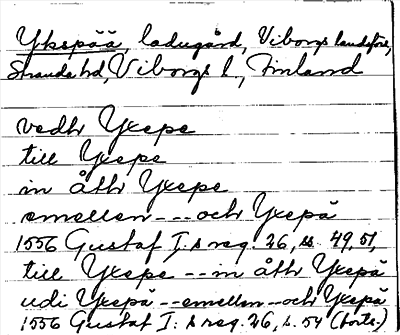 Ykspää, ladugård, Viborgs landsförs,
Stranda hd, Viborgs l., Finland
vedh Yxepe
till Yxepe
in åth Yxepe
emellen --- och Yxepä
1556 Gustaf I:s reg. 26, s. 49, 51,
till Yxepe -- in åth Yxepe
udi Yxepä -- emellen -- och Yxepä
1556 Gustaf I:s reg. 26, s. 54 (forts.)